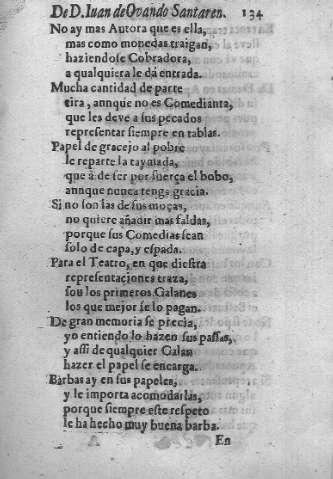 De D. Iuan de Ovando Santaren. 134
No ay mas Autora que es ella,
mas como monedas traigan,
haziendose Cobradora,
a qualquiera le dà entrada.
Mucha cantidad de parte
tira, annque no es Comedianta,
que les deve a sus pecados
representar siempre en tablas.
Papel de gracejo al pobre
le reparte la taymada,
que à de ser por fuerça el bobo,
annque nunca tenga gracia.
Si no son las de sus moças,
no quiere añadir mas faldas,
porque sus Comedias sean
solo de capa, y espada.
Para el Teatro, en que diestra
representaciones traza,
son los primeros Galanes
los que mejor se lo pagan.
De gran memoria se precia,
yo entiendo lo hazen sus passas,
y assi de qualquier Galan
hazer el papel se encarga.
Barbas ay en sus papeles,
y le importa acomodarlas,
porque siempre este respeto
le ha hecho muy buena barba.
En